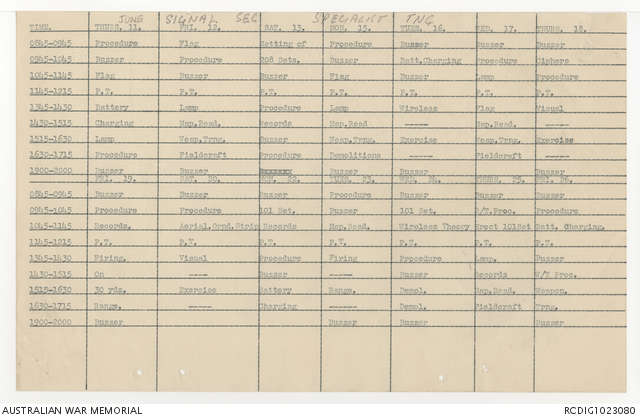 JUNG SIGNAL SEC SPECIALIST TNG
TIME. THURS. 11. FRI. 12. SAT. 13. MON. 15. TUES. 16. WED. 17. THURS. 18.
0845-0945 Procedure Flag Setting of Procedure Buzzer Buzzer Buzzer
0945-1045 Buzzer Procedure 208 Sets. Buzzer Batt.Charging Procedure Ciphers
1045-1145 Flag Buzzer Buzzer Flag Buzzer Lamp Procedure
1145-1215 P.T. P.T. P.T. P.T. P.T. P.T. P.T.
1345-1430 Battery Lamp Procedure Lamp Wireless Flag Visual
1430-1515 Charging Map.Read Records Map.Read ----- Map.Read. -----
1515-1630 Lamp Weap.Trng. Buzzer Weap.Trng. Exercise Weap.Trng. Exercise
1630-1715 Procedure Fieldcraft Procedure Demolitions ----- Fieldcraft -----
1900-2000 Buzzer Buzzer xxxxxxx Buzzer Buzzer Buzzer
FRI. 19. SAT. 20. MON. 22. TUES. 23. WED. 24. THURS. 25. FRI. 26.
0845-0945 Buzzer Buzzer Buzzer Procedure Buzzer Buzzer Buzzer
0945-1045 Procedure Procedure 101 Set. Buzzer 101 Set. R/T.Proc. Procedure
1045-1145 Records. Aerial.Grnd.Strip Records Map.Read. Wireless Theory Erect 101Set Batt. Charging.
1145-1215 P.T. P.T. P.T. P.T. P.T. P.T. P.T.
1345-1430 Firing. Visual Procedure Firing Procedure Lamp. Buzzer
1430-1515 On ---- Buzzer ----- Buzzer Records W/T Proc.
1515-1630 30 yds. Exercise Battery Range. Demol. Map.Read. Weapon.
1630-1715 Range. ----- Charging ----- Demol. Fieldcraft Trng.
1900-2000 Buzzer Buzzer Buzzer Buzzer
AUSTRALIAN WAR MEMORIAL RCDIG1023080